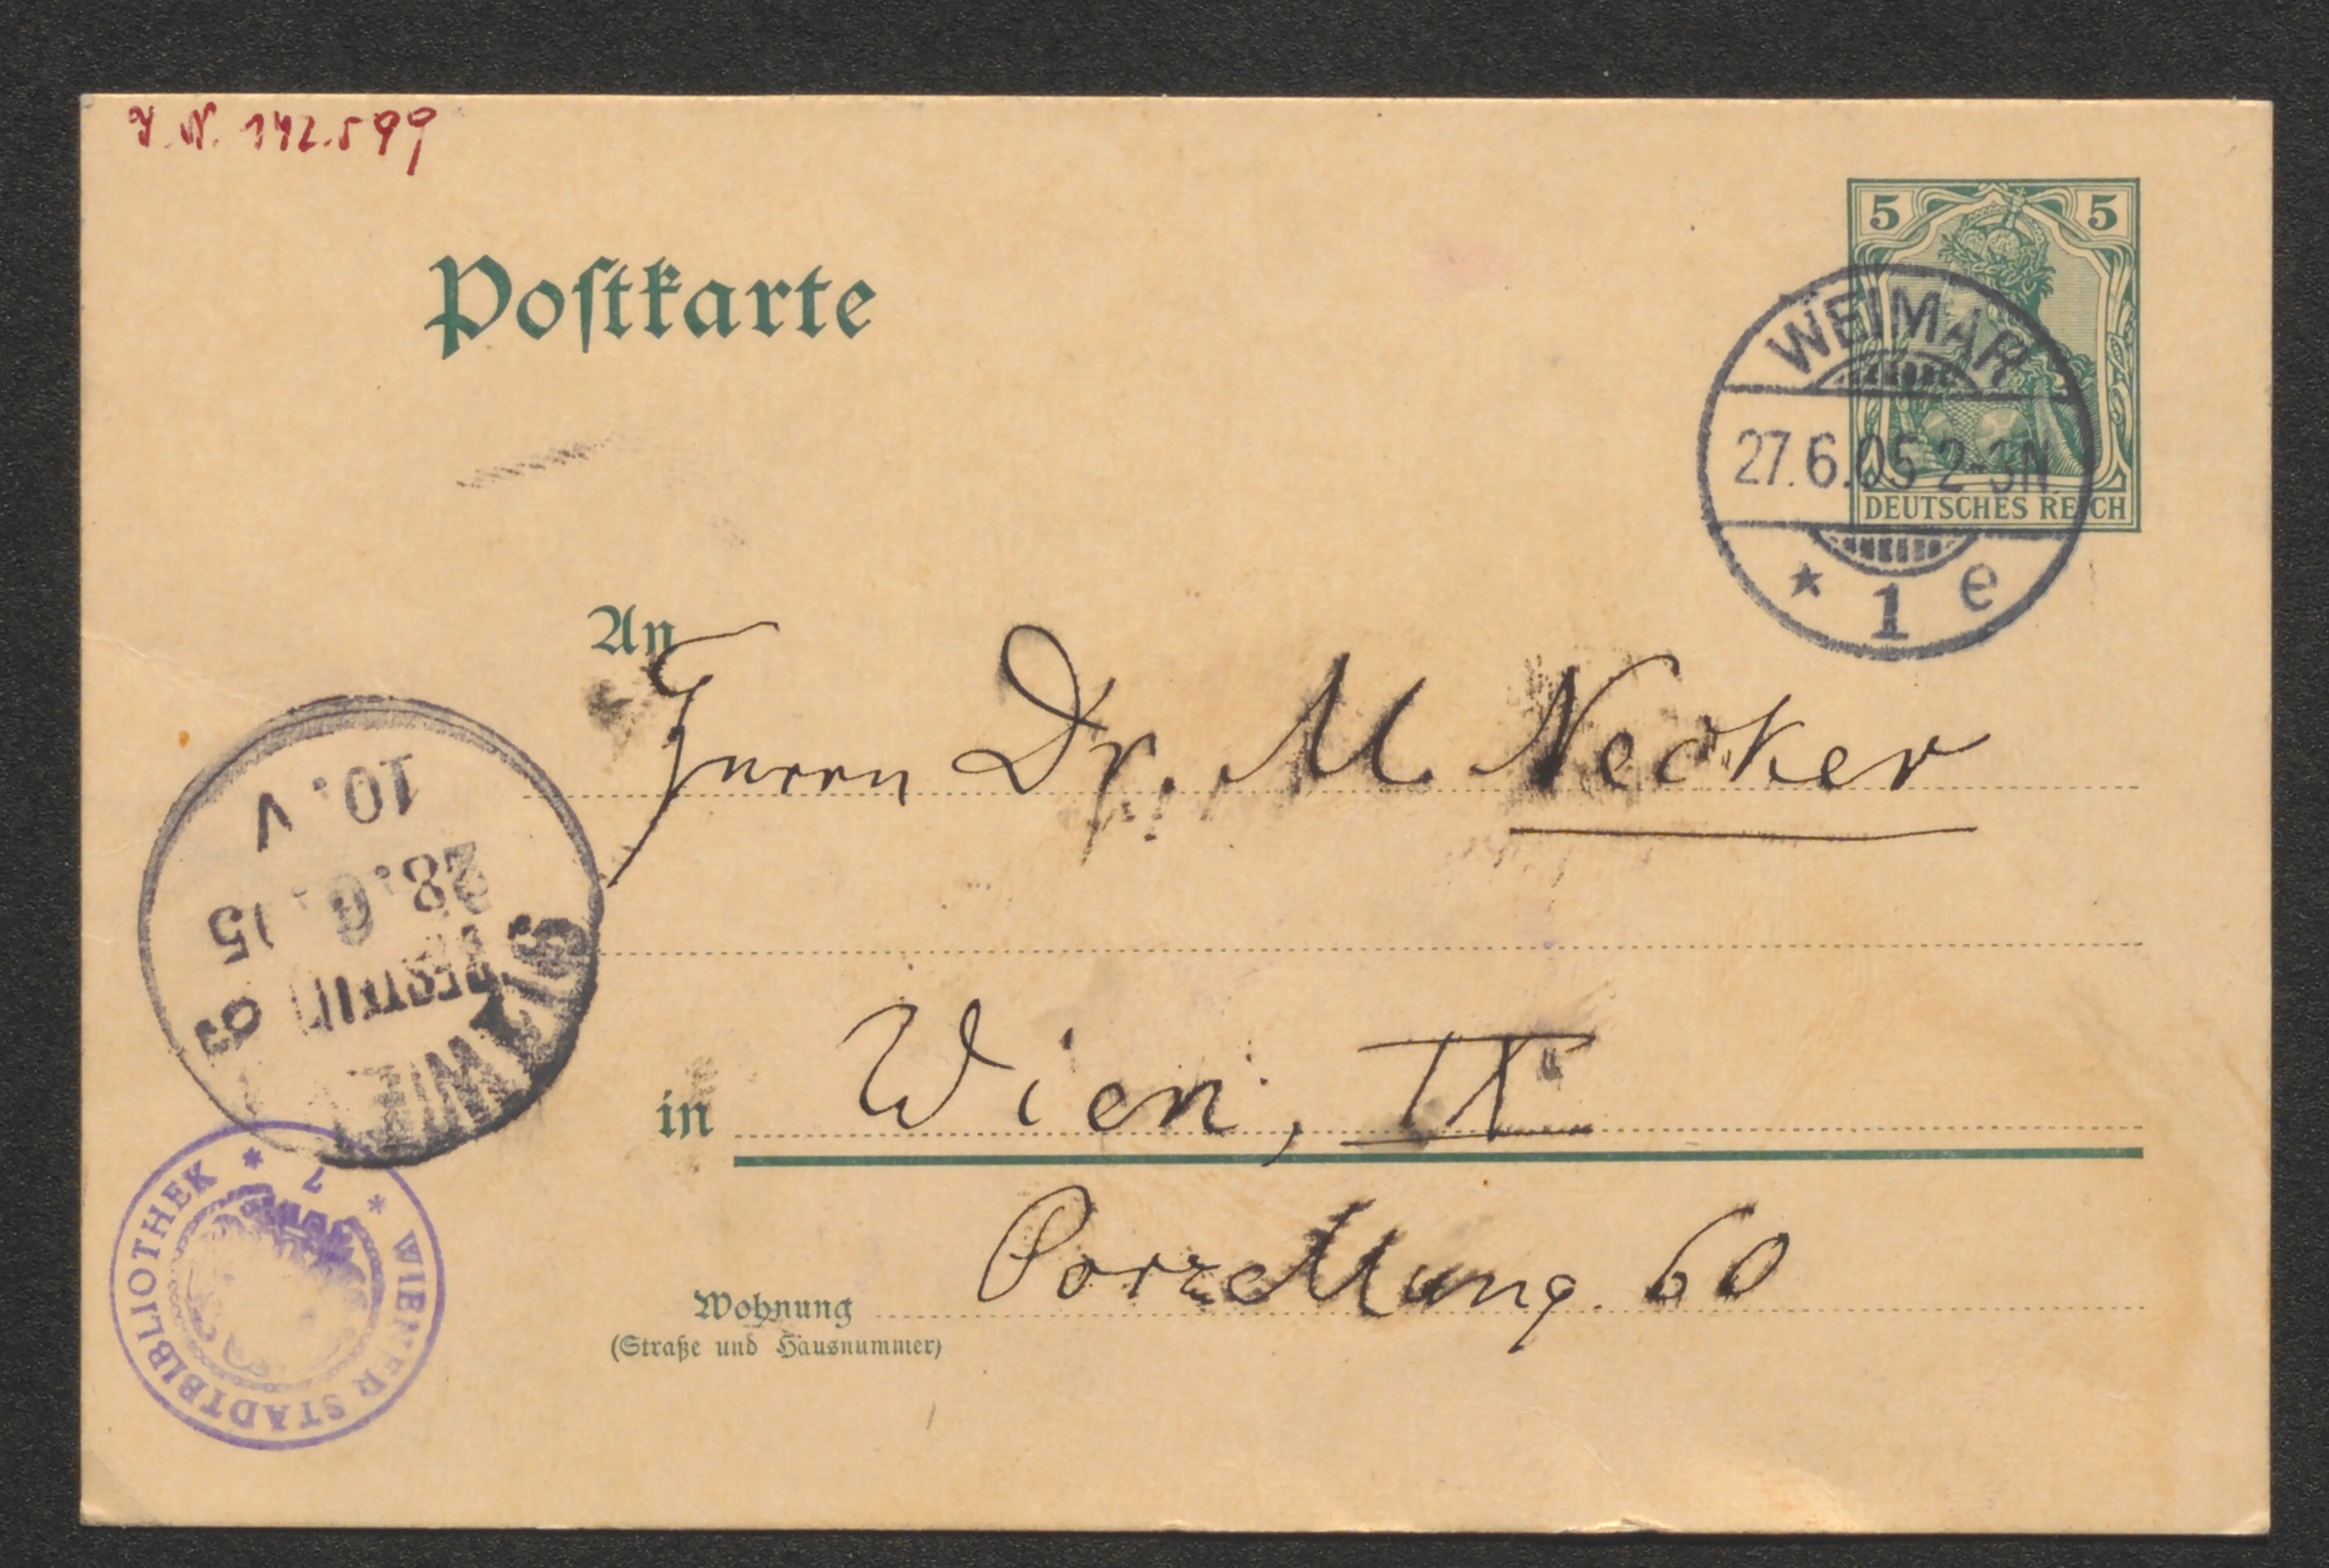 J.N. 142.599
Postkarte
5 5
WEIMAR
27.6.05 2-3N.
DEUTSCHES REICH
* 1 e
An
Herrn Dr. M. Necker
10. V
28. 6. 05
BESTELLT
WIEN
in Wien, IX
Porzellang. 60
Wohnung
(Straße und Hausnummer)
* WIENER STADTBIBLIOTHEK *